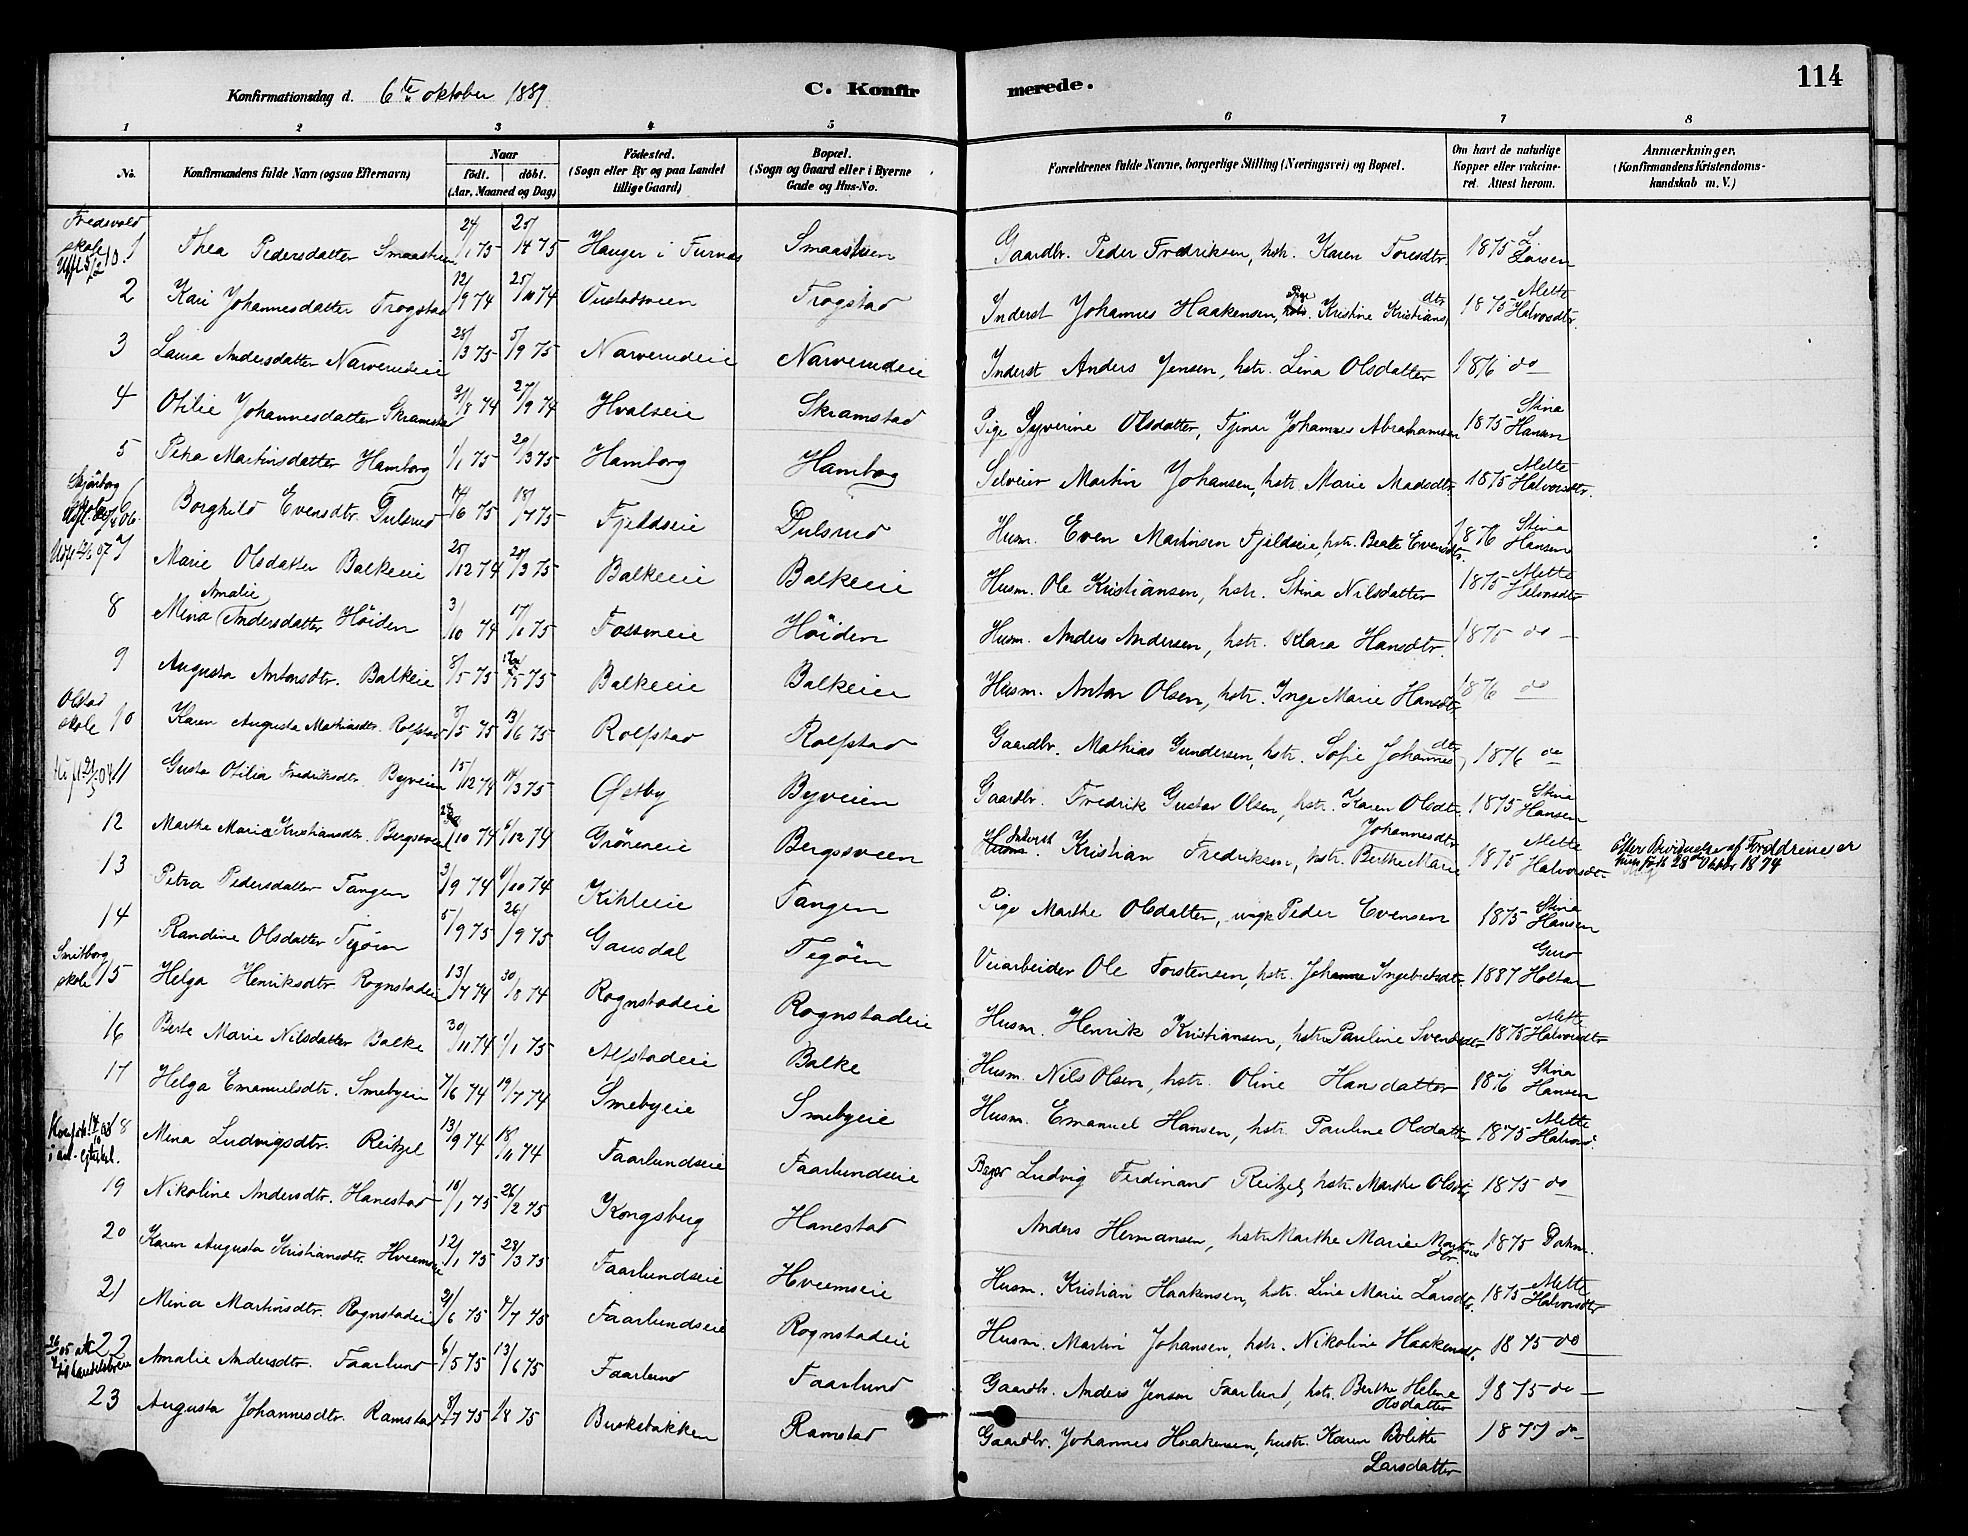 114
Konfirmationsdag d. 6te oktober 1889. C. Konfirmerede.
1 2 3 4 5 6 7 8
No. Konfirmandens fulde Navn (ogsaa Efternavn) Naar födt. döbt. (Aar, Maaned og Dag) Födested. (Sogn eller By og paa Landet tillige Gaard) Bopæl. (Sogn og Gaard eller i Byerne Gade og Hus-No. Forældrenes fulde Navne, borgerlige Stilling (Næringsvei) og Bopæl. Om havt de naturlige Kopper eller vakcineret. Attest herom. Anmærkninger, (Konfirmandens Kristendomskundskab m. V.)
Fredsvold skole
1 Thea Pedersdatter Smaastuen 24/1 75 Hauger i Furnæs Smaastuen Gaardbr. Peder Fredriksen, hstr. Karen Toresdtr. 1875 L Larsen
2 Kari Johannesdatter Trogstad 12/9 74 25/10 74 Trogstad Inderst Johannes Haakensen, Pige Kristine Kristiansdtr 1875 Mette Halvorsdtr.
3 Laura Andersdatter Narverudeie 28/3 75 5/9 75 Narverudeie Narverudeie Inderst Anders Jensen, hstr. Lina Olsdatter 1876 do
4 Otilie Johannesdatter Skramstad 27/9 74 Hvalseie Skramstad Pige Syverine Olsdatter, Tjener Johannes Abrahamsen 1875 Stina Hansen
5 Petra Martinsdatter Hamborg 1/1 75 29/3 75 Hamborg Hamborg Selveier Martin Johansen, hstr. Marie Madsdtr. 1875 Mette Halvorsdtr.
skole
6 Borghild Evensdtr. Dulsrud 14/6 75 18/7 75 Fjeldseie Dulsrud Husm. Even Martinsen Fjeldseie, hstr. Beate Evensdtr. 1876 Stina Hansen
7 Marie Olsdatter Balkeeie 25/12 74 29/3 75 Balkeeie Balkeeie Husm. Ole Kristiansen, hstr. Stina Nilsdatter 1875 Mette Halvorsdtr
8 Mina Amalie Andersdatter Höiden 3/10 74 17/1 75 Fossmeie Höiden Husm. Anders Andersen, hstr. Klara Hansdtr. 1875 do
9 Augusta Antonsdtr. Balkeeie 8/5 75 Balkeeie Balkeeie Husm. Anton Olsen, hstr. Inge Marie Hansdtr. 1876 do
Olstad skole
10 Karen Augusta Mathiasdtr. Rolfstad 3/5 75 13/6 75 Rolfstad Rolfstad Gaardbr. Mathias Gundersen, hstr. Sofie Johannesdtr, 1876 do
11 Gusta Otilia Fredriksdtr. Byveien 15/12 74 14/3 75 Østby Byveien Gaardbr. Fredrik Gustav Olsen, hstr. Karen Olsdtr. 1875 Stina Hansen
12 Marthe Marie Kristiansdtr. Bergsveen 28/10 74 6/12 74 Gröneneie Bergsveen Inderst Kristian Fredriksen, hstr. Berthe Marie Johannesdtr 1875 Mette Halvorsdtr. Efter Opgivelse af Forældrene er hun født 28de Oktbr 1874
13 Petra Pedersdatter Tangen 3/9 74 4/10 74 Kihleeie Tangen Pige Marthe Olsdatter, ungk Peder Evensen 1875 Stina Hansen
14 Randine Olsdatter Tejöien 5/9 75 26/9 75 Gausdal Tejöien Veiarbeider Ole Torstensen, hstr. Johanne Ingebretsdtr. 1887 Guro Holtar
Smitborg skole
15 Helga Henriksdtr Rognstadeie 13/7 74 30/8 74 Rognstadeie Rognstadeie Husm. Henrik Kristiansen, hstr. Pauline Svendsdtr 1875 Mette Halvorsdtr
16 Berte Marie Nilsdatter Balke 30/11 74 1/1 75 Alfstadeie Balke Husm. Nils Olsen, hstr. Oline Hansdatter 1876 Stina Hansen
17 Helga Emanuelsdtr. Smebyeie 7/6 74 19/7 74 Smebyeie Smebyeie Husm. Emanuel Hansen, hstr. Pauline Olsdatter 1875 Mette Halvorsd.
18 Mina Ludvigsdtr. Reitzel 13/9 74 18/11 74 Faarlundseie Faarlundseie Bager Ludvig Ferdinand Reitzel, hstr. Marthe Olsdtr. 1875 do
19 Nikoline Andersdtr. Hanestad 16/1 75 26/2 75 Kongsberg Hanestad Anders Hermansen, hstr. Marthe Marie Martins dtr. 1875 Dahm.
20 Karen Augusta Kristiansdtr. Hveemseie 12/1 75 28/3 75 Faarlundseie Hveemseie Husm. Kristian Haakensen, hstr. Lina Marie Larsdtr. 1875 Mette Halvorsdtr
21 Mina Martinsdtr. Rognstadeie 21/6 75 4/7 75 Faarlundseie Rognstadeie Husm. Martin Johansen, hstr. Nikoline Haakensdtr. 1875 do
22 Amalie Andersdtr. Faarlund 6/5 75 13/6 75 Faarlund Faarlund Gaardbr. Anders Jensen Faarlund, hstr. Berthe Helene Olsdatter 1875 do
23 Augusta Johannesdtr. Ramstad 8/7 75 1/8 75 Buskebakken Ramstad Gaardbr. Johannes Haakensen, hustr. Karen Bolette Larsdatter 1877 do